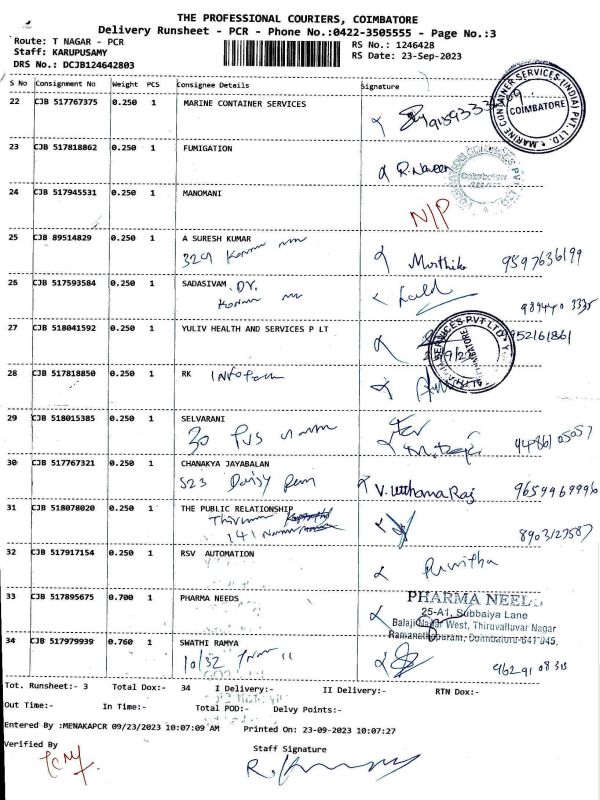 THE PROFESSIONAL COURIERS, COIMBATORE
Delivery Runsheet - PCR - Phone No.:0422-3505555 - Page No.:3
Route: T NAGAR - PCR
RS No.: 1246428
Staff: KARUPUSAMY
RS Date: 23-Sep-2023
DRS No.: DCJB124642803
S No Consignment No Weight PCS Consignee Details Signature
22 CJB 517767375 0.250 1 MARINE CONTAINER SERVICES
MARINE CONTAINER SERVICES (INDIA) PVT. LTD.
COIMBATORE
23 CJB 517818862 0.250 1 FUMIGATION
R. Naveen
24 CJB 517945531 0.250 1 MANOMANI
N/P
25 CJB 89514829 0.250 1 A SURESH KUMAR
329
Murthik 9597636199
26 CJB 517593584 0.250 1 SADASIVAM. DR.
27 CJB 518041592 0.250 1 YULIV HEALTH AND SERVICES P LT
952161861
COIMBATORE
28 CJB 517818850 0.250 1 RK
29 CJB 518015385 0.250 1 SELVARANI
30 PVS
30 CJB 517767321 0.250 1 CHANAKYA JAYABALAN
523 Daisy
V. Utthama Raj 9659969996
31 CJB 518078020 0.250 1 THE PUBLIC RELATIONSHIP
141
8903127587
32 CJB 517917154 0.250 1 RSV AUTOMATION
Punitha
33 CJB 517895675 0.700 1 PHARMA NEEDS
PHARMA NEEDS
25-A1, Subbaiya Lane
Balaji Nagar West, Thiruvalluvar Nagar
Ramanathapuram, Coimbatore-641 045.
34 CJB 517979939 0.760 1 SWATHI RAMYA
10/32
Tot. Runsheet:- 3 Total Dox:- 34 I Delivery:- II Delivery:- RTN Dox:-
Out Time:- In Time:- Total POD:- Delvy Points:-
Entered By :MENAKAPCR 09/23/2023 10:07:09 AM Printed On: 23-09-2023 10:07:27
Verified By
Staff Signature